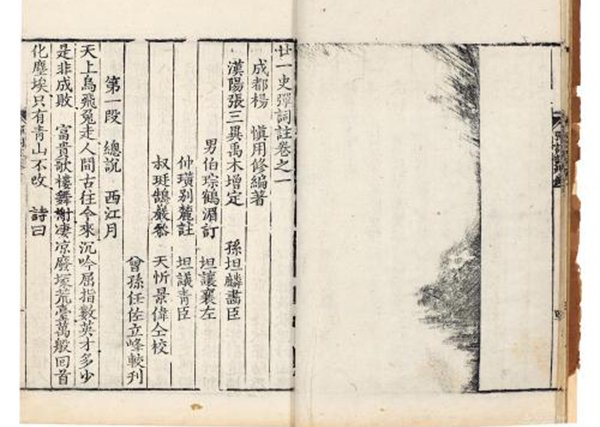 廿一史彈詞註卷之一
成都楊 慎用修編著
漢陽張三異禹木增定 孫坦麟畵臣
男伯琮鶴湄訂 坦讓襄左
仲璜別麓註 坦議青臣
叔珽鵠巖叅 天忻景偉仝校
曾孫任佐立峰較刋
第一段 總説 西江月
天上烏飛兔走人間古往今來沉吟屈指數英才多少
是非成敗 富貴歌樓舞榭凄凉廢塚荒臺萬般回首
化塵埃只有青山不改 詩曰